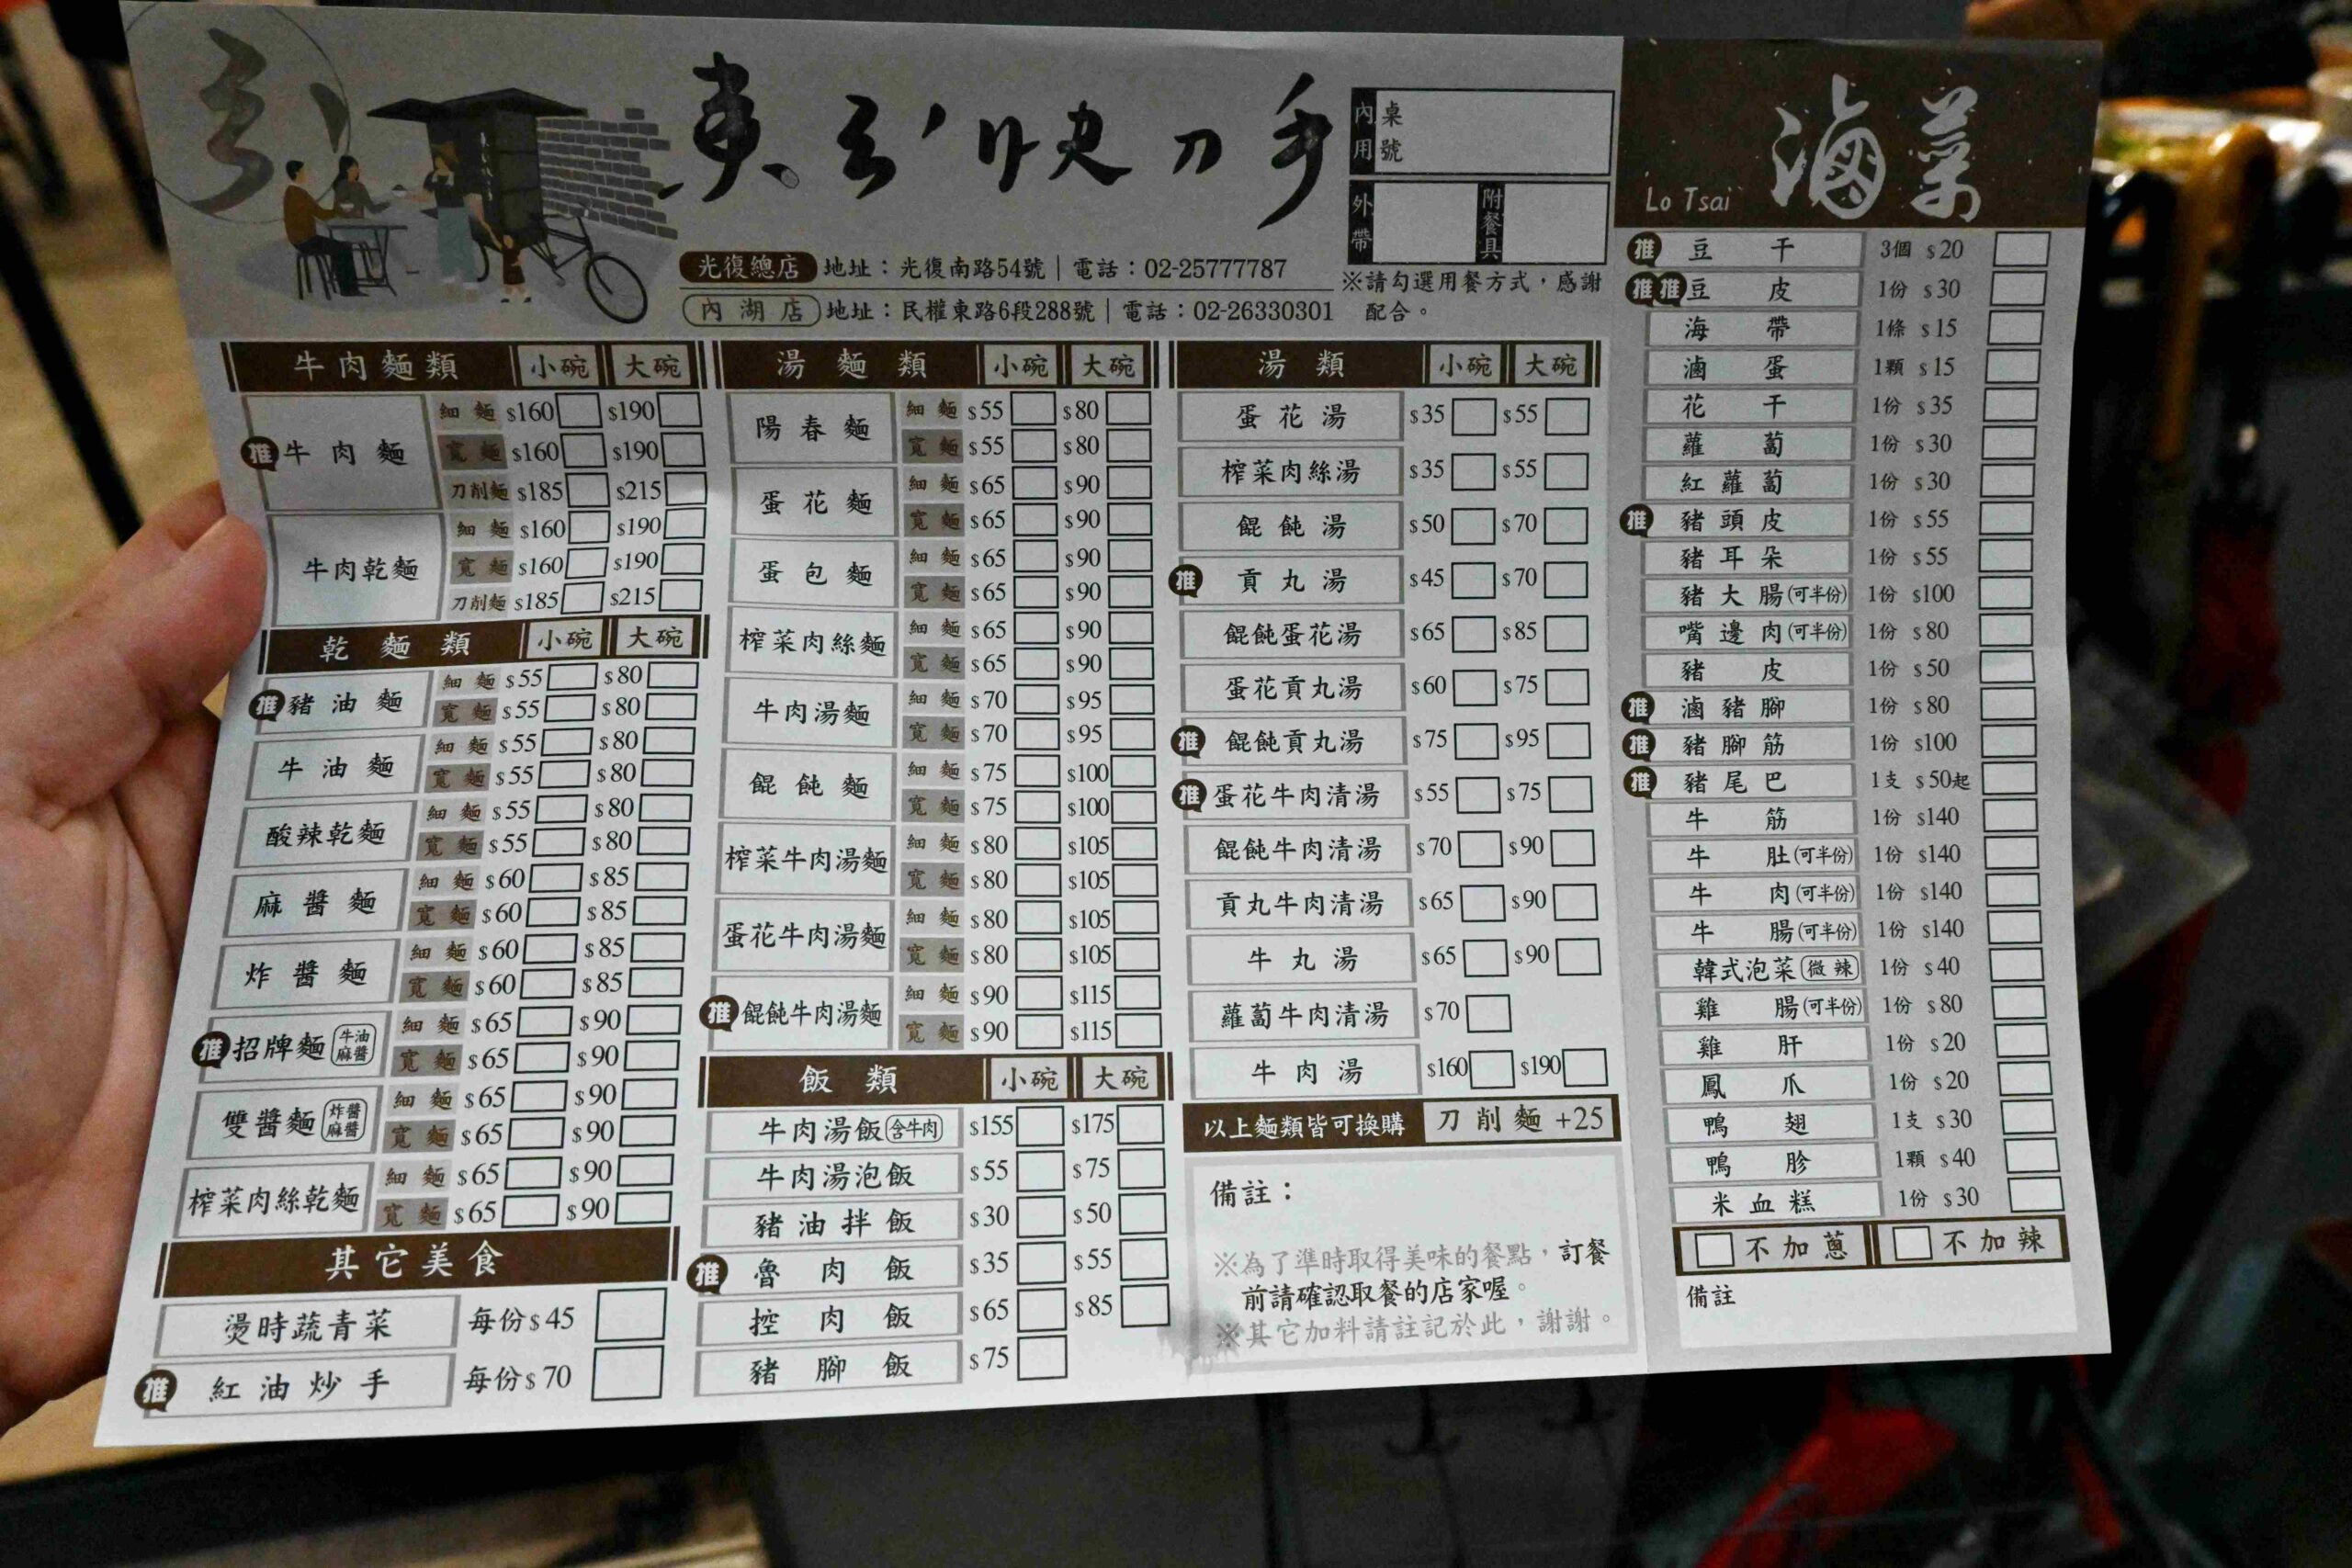 快刀手
內用 桌號
外帶 附餐具
光復總店 地址：光復南路54號｜電話：02-25777787
內湖店 地址：民權東路6段288號｜電話：02-26330301
※請勾選用餐方式，感謝
配合。
牛肉麵類 小碗 大碗
推 牛肉麵 細麵 $160 $190
寬麵 $160 $190
刀削麵 $185 $215
牛肉乾麵 細麵 $160 $190
寬麵 $160 $190
刀削麵 $185 $215
乾麵類 小碗 大碗
推 豬油麵 細麵 $55 $80
寬麵 $55 $80
牛油麵 細麵 $55 $80
寬麵 $55 $80
酸辣乾麵 細麵 $55 $80
寬麵 $55 $80
麻醬麵 細麵 $60 $85
寬麵 $60 $85
炸醬麵 細麵 $60 $85
寬麵 $60 $85
推 招牌麵 牛油麻醬 細麵 $65 $90
寬麵 $65 $90
雙醬麵 炸醬麻醬 細麵 $65 $90
寬麵 $65 $90
榨菜肉絲乾麵 細麵 $65 $90
寬麵 $65 $90
其它美食
燙時蔬青菜 每份$45
推 紅油炒手 每份$70
湯麵類 小碗 大碗
陽春麵 細麵 $55 $80
寬麵 $55 $80
蛋花麵 細麵 $65 $90
寬麵 $65 $90
蛋包麵 細麵 $65 $90
寬麵 $65 $90
榨菜肉絲麵 細麵 $65 $90
寬麵 $65 $90
牛肉湯麵 細麵 $70 $95
寬麵 $70 $95
餛飩麵 細麵 $75 $100
寬麵 $75 $100
榨菜牛肉湯麵 細麵 $80 $105
寬麵 $80 $105
蛋花牛肉湯麵 細麵 $80 $105
寬麵 $80 $105
推 餛飩牛肉湯麵 細麵 $90 $115
寬麵 $90 $115
飯類 小碗 大碗
牛肉湯飯 含牛肉 $155 $175
牛肉湯泡飯 $55 $75
豬油拌飯 $30 $50
推 魯肉飯 $35 $55
控肉飯 $65 $85
豬腳飯 $75
湯類 小碗 大碗
蛋花湯 $35 $55
榨菜肉絲湯 $35 $55
餛飩湯 $50 $70
推 貢丸湯 $45 $70
餛飩蛋花湯 $65 $85
蛋花貢丸湯 $60 $75
推 餛飩貢丸湯 $75 $95
推 蛋花牛肉清湯 $55 $75
餛飩牛肉清湯 $70 $90
貢丸牛肉清湯 $65 $90
牛丸湯 $65 $90
蘿蔔牛肉清湯 $70
牛肉湯 $160 $190
以上麵類皆可換購 刀削麵+25
備註：
※為了準時取得美味的餐點，訂餐
前請確認取餐的店家喔。
※其它加料請註記於此，謝謝。
Lo Tsai 滷菜
推 豆干 3個 $20
推 推 豆皮 1份 $30
海帶 1條 $15
滷蛋 1顆 $15
花干 1份 $35
蘿蔔 1份 $30
紅蘿蔔 1份 $30
推 豬頭皮 1份 $55
豬耳朵 1份 $55
豬大腸(可半份) 1份 $100
嘴邊肉(可半份) 1份 $80
豬皮 1份 $50
推 滷豬腳 1份 $80
推 豬腳筋 1份 $100
推 豬尾巴 1支 $50起
牛筋 1份 $140
牛肚(可半份) 1份 $140
牛肉(可半份) 1份 $140
牛腸(可半份) 1份 $140
韓式泡菜 微辣 1份 $40
雞腸(可半份) 1份 $80
雞肝 1份 $20
鳳爪 1份 $20
鴨翅 1支 $30
鴨胗 1顆 $40
米血糕 1份 $30
不加蔥 不加辣
備註